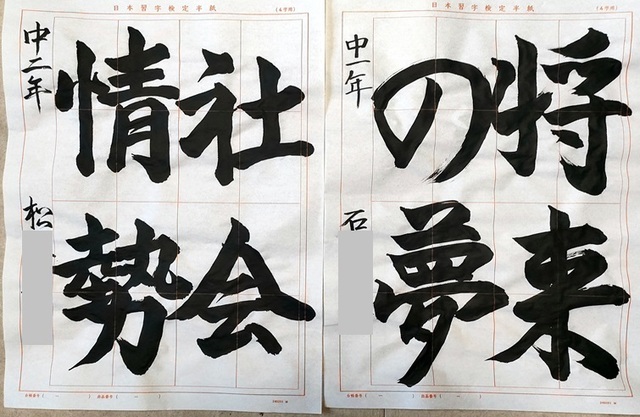 日本習字検定半紙
(4字用)
将来
の夢
中一年
石
日本習字検定半紙
(4字用)
社会
情勢
中二年
松